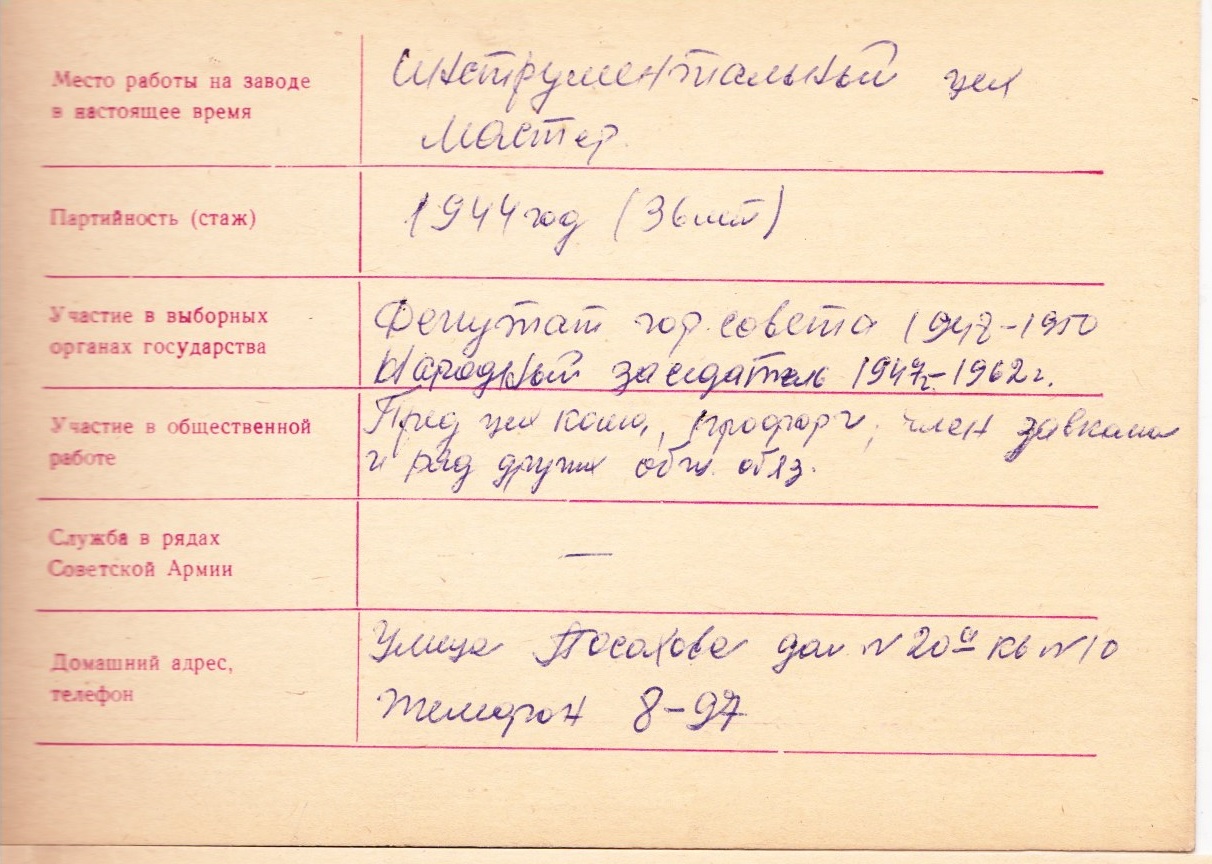 Место работы на заводе
в настоящее время
Инструментальный цех
Мастер
Партийность (стаж)
1944 год (36 лет)
Участие в выборных
органах государства
Депутат гор. совета 1948-1950
Народный заседатель 1947г.-1962г.
Участие в общественной
работе
Пред цех кома, профорг, член завкома
и ряд других общ. обяз.
Служба в рядах
Советской Армии
—
Домашний адрес,
телефон
Улица Посахова дом №20а кв №10
Телефон 8-97